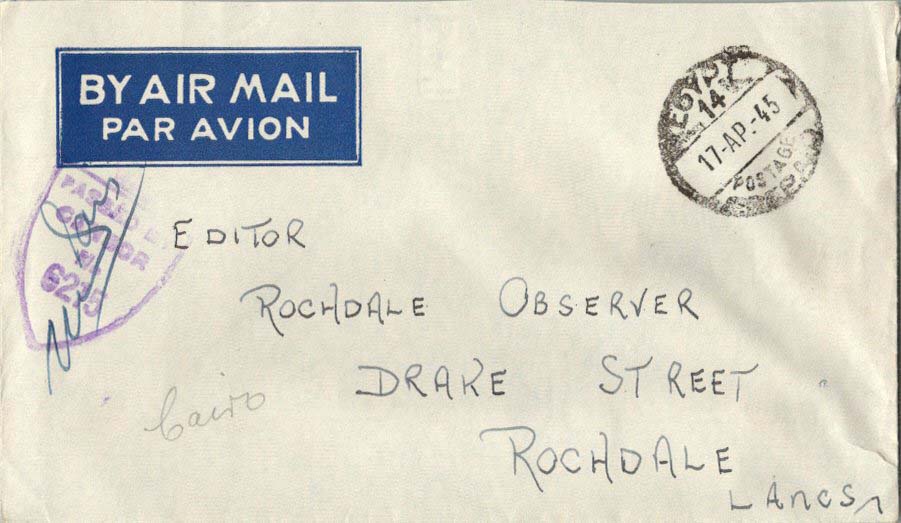 BY AIR MAIL
PAR AVION
EGYPT
14
17-AP.-45
POSTAGE
PREPAID
PASSED BY
CENSOR
6215
EDITOR
ROCHDALE OBSERVER
DRAKE STREET
ROCHDALE
LANCS
Cairo